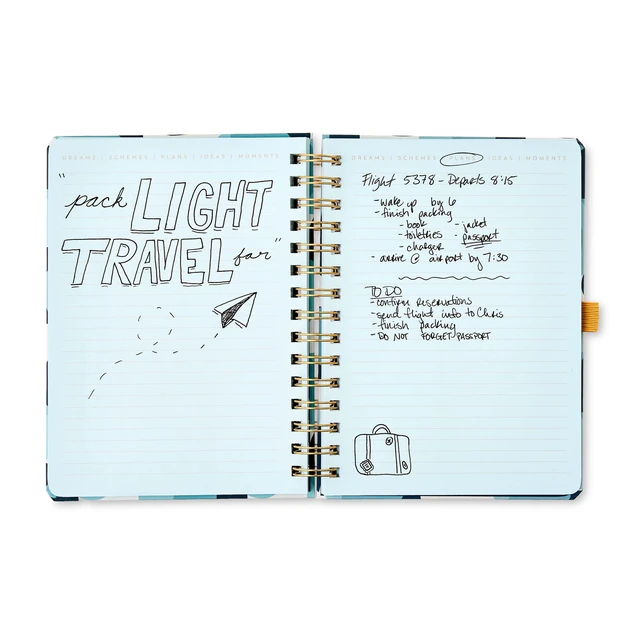 DREAMS | SCHEMES | PLANS | IDEAS | MOMENTS
"pack LIGHT
TRAVEL far"
DREAMS | SCHEMES | PLANS | IDEAS | MOMENTS
Flight 5378 - Departs 8:15
- wake up by 6
- finish packing
- book - jacket
- toiletries - passport
- charger
- arrive @ airport by 7:30
TO DO
- confirm reservations
- send flight info to Chris
- finish packing
- DO NOT FORGET PASSPORT